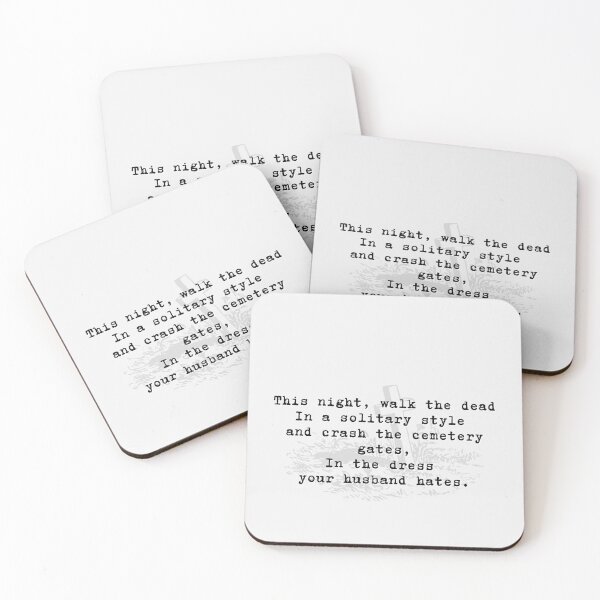 This night, walk the
In a style
This night, walk the dead
In a solitary style
and crash the cemetery
gates,
In the dress
This night, walk the dead
In a solitary style
and crash the cemetery
gates,
In the dress
your husband
This night, walk the dead
In a solitary style
and crash the cemetery
gates,
In the dress
your husband hates.